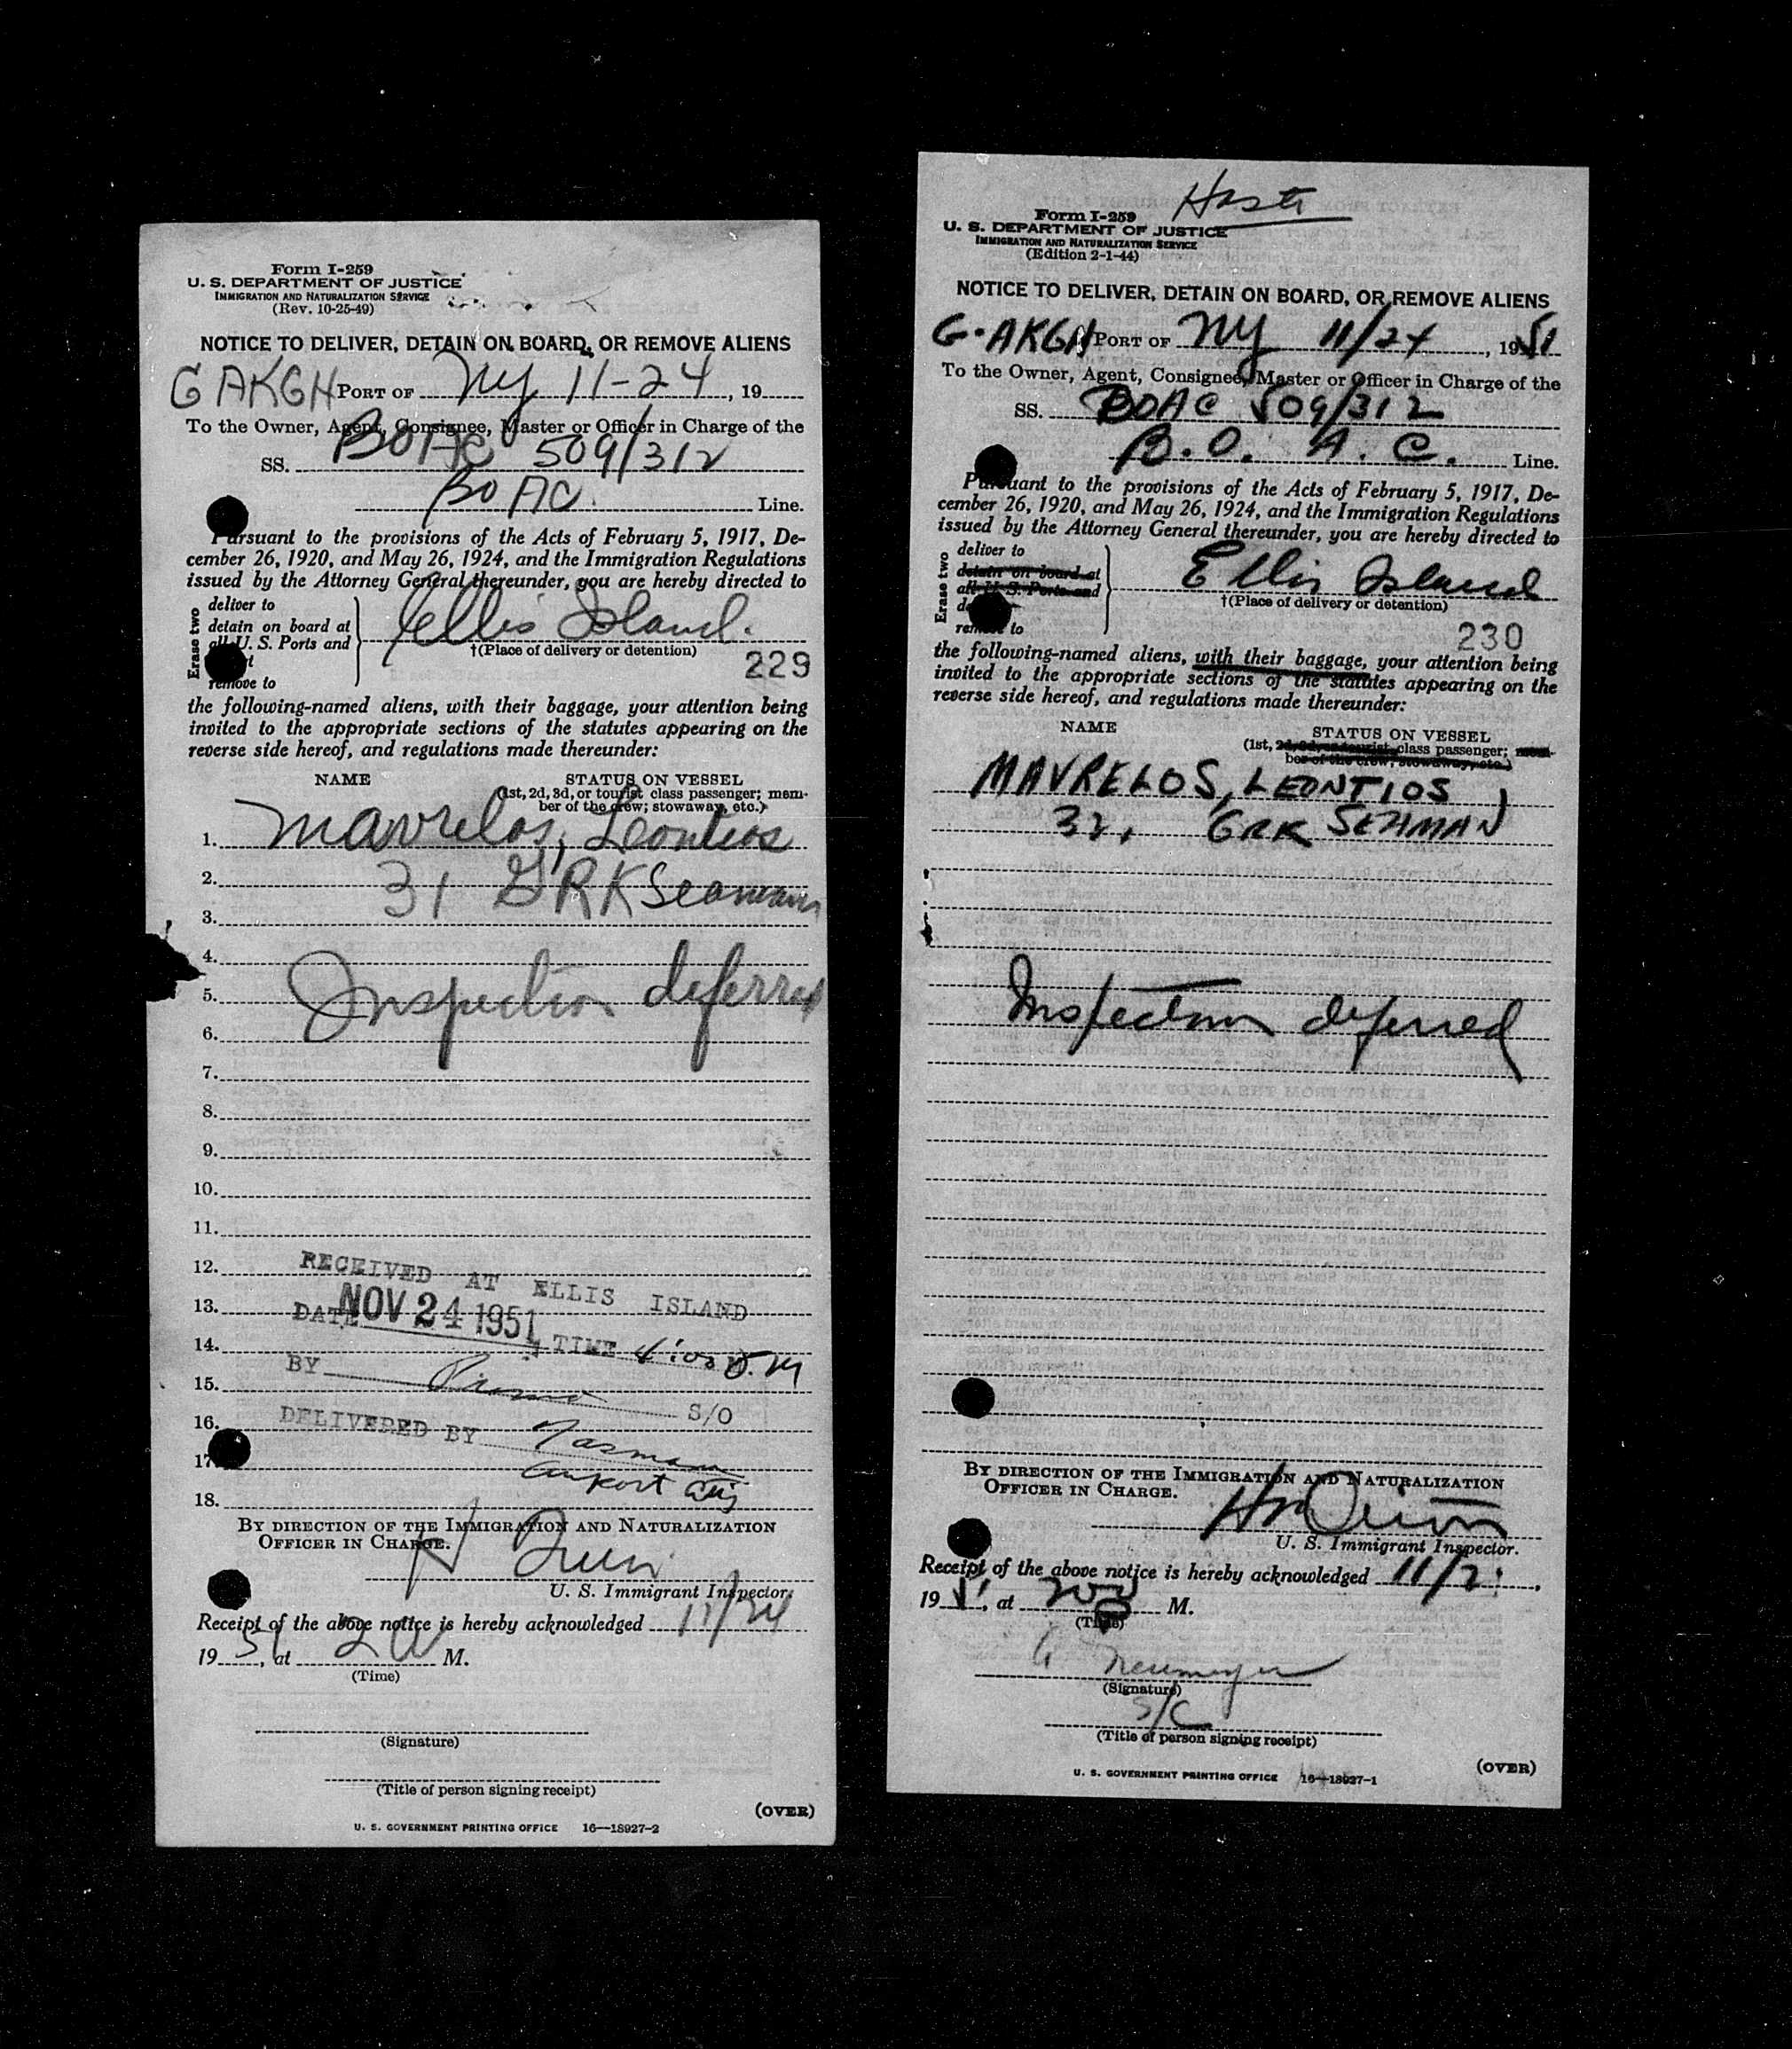 Form I-259
U. S. DEPARTMENT OF JUSTICE
IMMIGRATION AND NATURALIZATION SERVICE
(Rev. 10-25-49)
NOTICE TO DELIVER, DETAIN ON BOARD, OR REMOVE ALIENS
G AKGH PORT OF NY 11-24, 19
To the Owner, Agent, Consignee, Master or Officer in Charge of the
SS. BOAC 509/312
BOAC. Line.
Pursuant to the provisions of the Acts of February 5, 1917, De-
cember 26, 1920, and May 26, 1924, and the Immigration Regulations
issued by the Attorney General thereunder, you are hereby directed to
Erase two
deliver to
detain on board at
all U. S. Ports and
remove to
Ellis Island.
†(Place of delivery or detention)
229
the following-named aliens, with their baggage, your attention being
invited to the appropriate sections of the statutes appearing on the
reverse side hereof, and regulations made thereunder:
NAME STATUS ON VESSEL
(1st, 2d, 3d, or tourist class passenger; mem-
ber of the crew; stowaway, etc.)
1. Mavrelos, Leontios
2. 31 GRK Seaman
3.
4.
5. Inspection deferred
6.
7.
8.
9.
10.
11.
12.
RECEIVED AT ELLIS ISLAND
13.
DATE NOV 24 1951 TIME 4:00 P.M
14.
BY S/O
15.
16.
DELIVERED BY
17.
airport
18.
BY DIRECTION OF THE IMMIGRATION AND NATURALIZATION
OFFICER IN CHARGE.
U. S. Immigrant Inspector.
Receipt of the above notice is hereby acknowledged 11/24
1951, at M.
(Time)
(Signature)
(Title of person signing receipt)
(OVER)
U. S. GOVERNMENT PRINTING OFFICE 16—18927-2
Form I-259
U. S. DEPARTMENT OF JUSTICE
IMMIGRATION AND NATURALIZATION SERVICE
(Edition 2-1-44)
NOTICE TO DELIVER, DETAIN ON BOARD, OR REMOVE ALIENS
G-AKGH PORT OF NY 11/24, 1951
To the Owner, Agent, Consignee, Master or Officer in Charge of the
SS. BOAC 509/312
B.O. A.C. Line.
Pursuant to the provisions of the Acts of February 5, 1917, De-
cember 26, 1920, and May 26, 1924, and the Immigration Regulations
issued by the Attorney General thereunder, you are hereby directed to
Erase two
deliver to
detain on board at
all U. S. Ports and
remove to
Ellis Island
†(Place of delivery or detention)
230
the following-named aliens, with their baggage, your attention being
invited to the appropriate sections of the statutes appearing on the
reverse side hereof, and regulations made thereunder:
NAME STATUS ON VESSEL
(1st, 2d, 3d, or tourist class passenger; mem-
ber of the crew; stowaway, etc.)
MAVRELOS, LEONTIOS
32, GRK SEAMAN
Inspection deferred
BY DIRECTION OF THE IMMIGRATION AND NATURALIZATION
OFFICER IN CHARGE.
U. S. Immigrant Inspector.
Receipt of the above notice is hereby acknowledged
1951, at M.
(Time)
Neumeyer
(Signature)
S/C
(Title of person signing receipt)
(OVER)
U. S. GOVERNMENT PRINTING OFFICE 16—18927-1